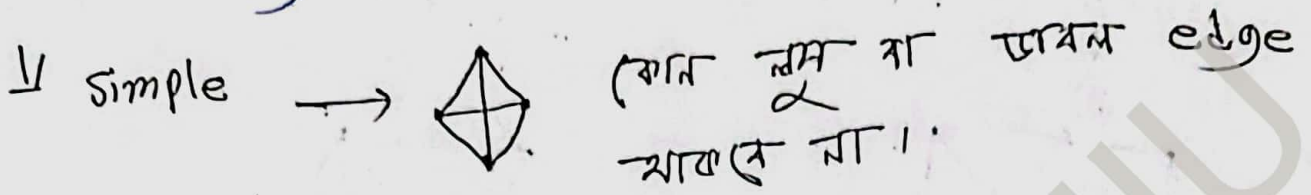 1) Simple → কোন লুপ বা ডাবল edge
থাকবে না।